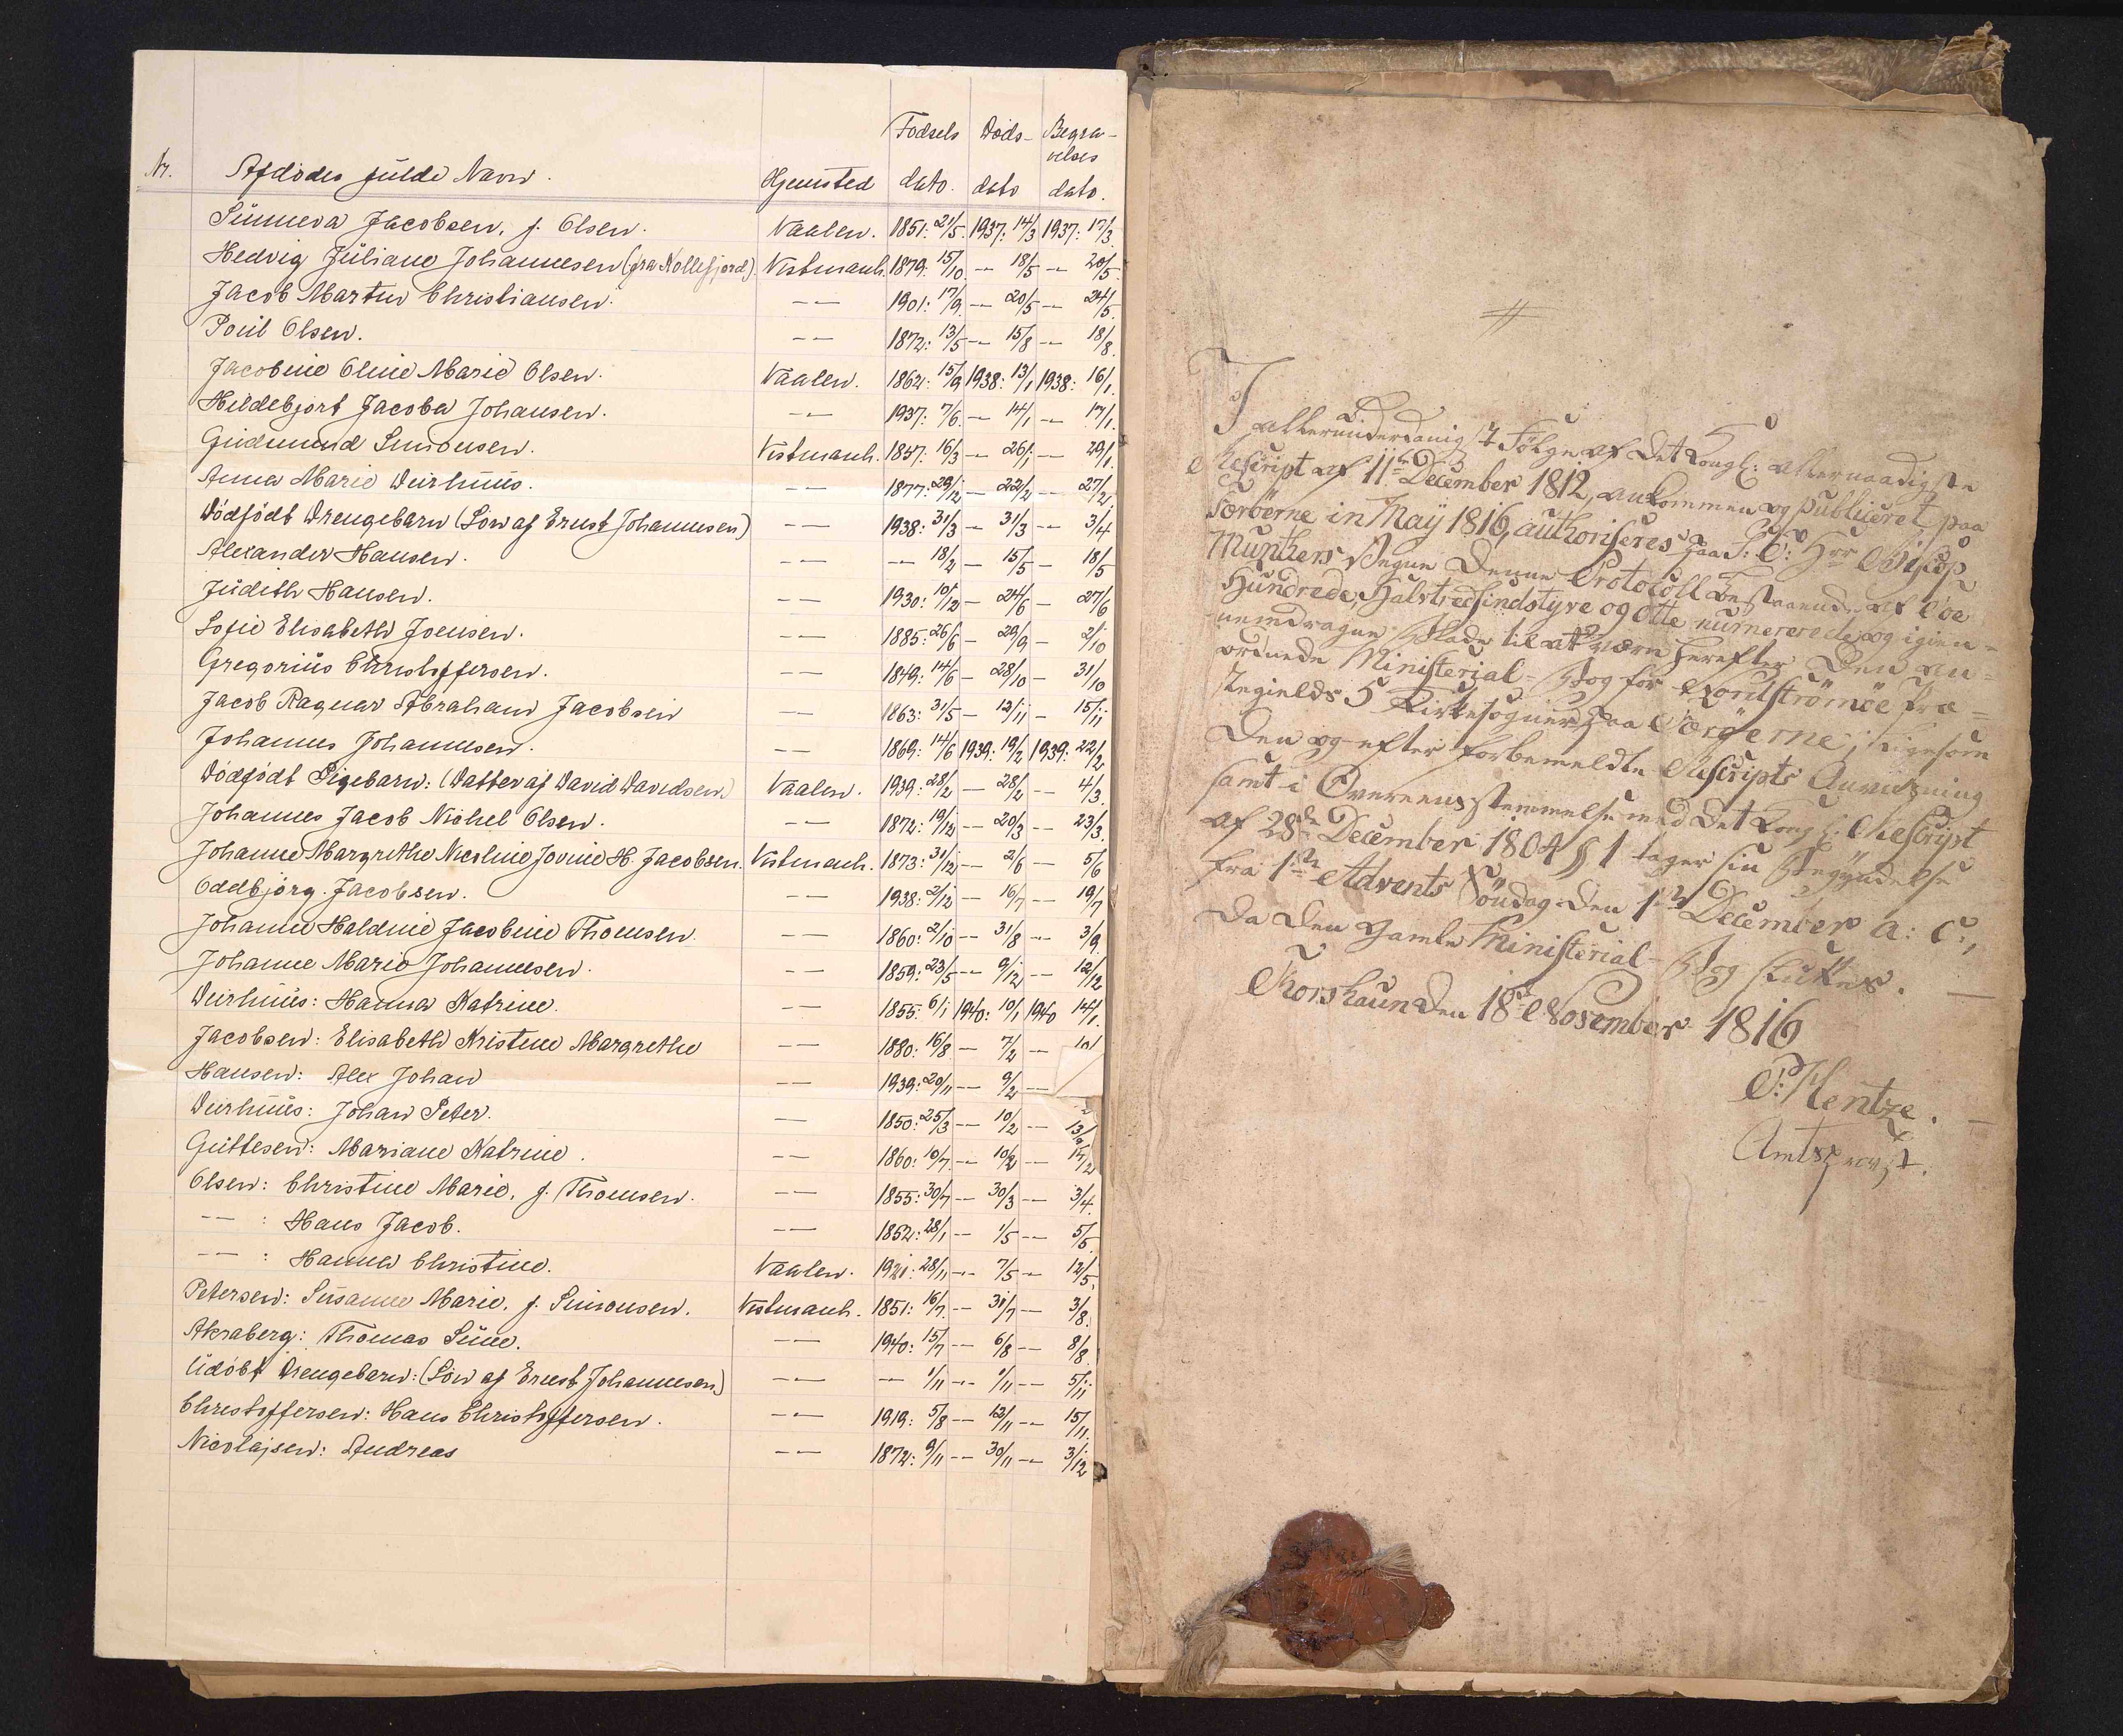 Nr. Afdödes fulde Navn. Hjemsted Fødsels dato. Døds- dato Begra- velses dato.
Sunneva Jacobsen, f. Olsen. Vaalen. 1851: 21/5. 1937: 14/3 1937: 17/3.
Hedvig Juliane Johannesen (fra Kollefjord). Vestmanh. 1879: 15/10 -- 18/5 -- 20/5.
Jacob Martin Christiansen. -- 1901: 17/9. -- 20/5 -- 24/5.
Poul Olsen. -- 1872: 13/5 -- 15/8 -- 18/8.
Jacobine Oline Marie Olsen. Vaalen. 1862: 15/9 1938: 13/1 1938: 16/1.
Hildebjort Jacoba Johansen. -- 1937: 7/6 -- 14/1 -- 17/1.
Gudmund Simonsen. Vestmanh. 1857: 16/3 -- 26/1 -- 29/1.
Anna Marie Durhuus. -- 1877: 29/12 -- 22/2 -- 27/2
Dödfödt Drengebarn (Sön af Ernst Johannesen) -- 1938: 31/3 -- 31/3 -- 3/4
Alexander Hansen. -- -- 18/2 -- 15/5 -- 18/5
Judith Hansen. -- 1930: 10/12 -- 24/6 -- 27/6
Sofie Elisabeth Joensen. -- 1885: 26/6 -- 29/9 -- 2/10
Gregorius Christoffersen. -- 1849: 14/6 -- 28/10 -- 31/10
Jacob Ragnar Abraham Jacobsen -- 1863: 31/5 -- 12/11 -- 15/11
Johannes Johannesen. -- 1869: 14/6 1939: 19/2 1939: 22/2
Dödfödt Pigebarn: (Datter af David Davidsen) Vaalen. 1939: 28/2 -- 28/2 -- 4/3.
Johannes Jacob Michel Olsen. -- 1872: 19/12 -- 20/3 -- 23/3
Johanne Margrethe Nicoline Jovine H. Jacobsen. Vestmanh. 1873: 31/12 -- 2/6 -- 5/6
Oddbjörg Jacobsen. -- 1938: 2/12 -- 16/7 -- 19/7
Johanne Haldine Jacobine Thomsen. -- 1860: 2/10 -- 31/8 -- 3/9
Johanne Marie Johannesen. -- 1859: 23/5 -- 9/12 -- 12/12
Durhuus: Hanna Katrine. -- 1855: 6/1 1940: 10/1 1940 14/1.
Jacobsen: Elisabeth Kristine Margrethe -- 1880: 16/8 -- 7/2 --
Hansen: Alex Johan -- 1939: 20/11 -- 9/2 --
Durhuus: Johan Peter. -- 1850: 25/3 -- 10/2 -- 13/2
Guttesen: Mariane Katrine. -- 1860: 10/7 -- 10/2 -- 17/2
Olsen: Christine Marie, f. Thomsen. -- 1855: 30/7 -- 30/3 -- 3/4.
-- : Hans Jacob. -- 1852: 28/1 -- 1/5 -- 5/5.
-- : Hanna Christine. Vaalen. 1921: 28/11 -- 7/5 -- 12/5.
Petersen: Susanne Marie, f. Simonsen. Vestmanh. 1851: 16/7 -- 31/7 -- 3/8.
Akraberg: Thomas Sune. -- 1940: 15/7 -- 6/8 -- 8/8
Udöbt Drengebarn: (Sön af Ernst Johannesen) -- -- 1/11 -- 1/11 -- 5/11
Christoffersen: Hans Christoffersen. -- 1919: 5/8 -- 12/11 -- 15/11.
Nicolajsen: Andreas -- 1872: 9/11 -- 30/11 -- 3/12
I allerunderdanigst Fölge af Det Kongl: allernaadigste
Rescript af 11te December 1812, ankommen og publiceret paa
Færöerne in May 1816, authoriseres paa S: T: Hrr Biskop
Munthers Vegne Denne Protocoll bestaaende af Toe
Hundrede, Halvtredsindstyve og Otte numererede og igien-
nemdragne Blade til at være herefter Den an-
ordnede Ministerial-Bog for Nordströmöe Præ-
stegields 5 Kirkesogner paa Færöerne; ligesom
Den og efter forbemeldte Rescripts Anviisning
samt i Overeensstemmelse med Det Kongl: Rescript
af 28de December 1804 § 1 tager sin Begyndelse
fra 1ste Advents Söndag Den 1ste December a: c:,
da Den gamle Ministerial-Bog sluttes.
Thorshaun Den 18de November 1816
P: Hentze.
Amtsprovst.